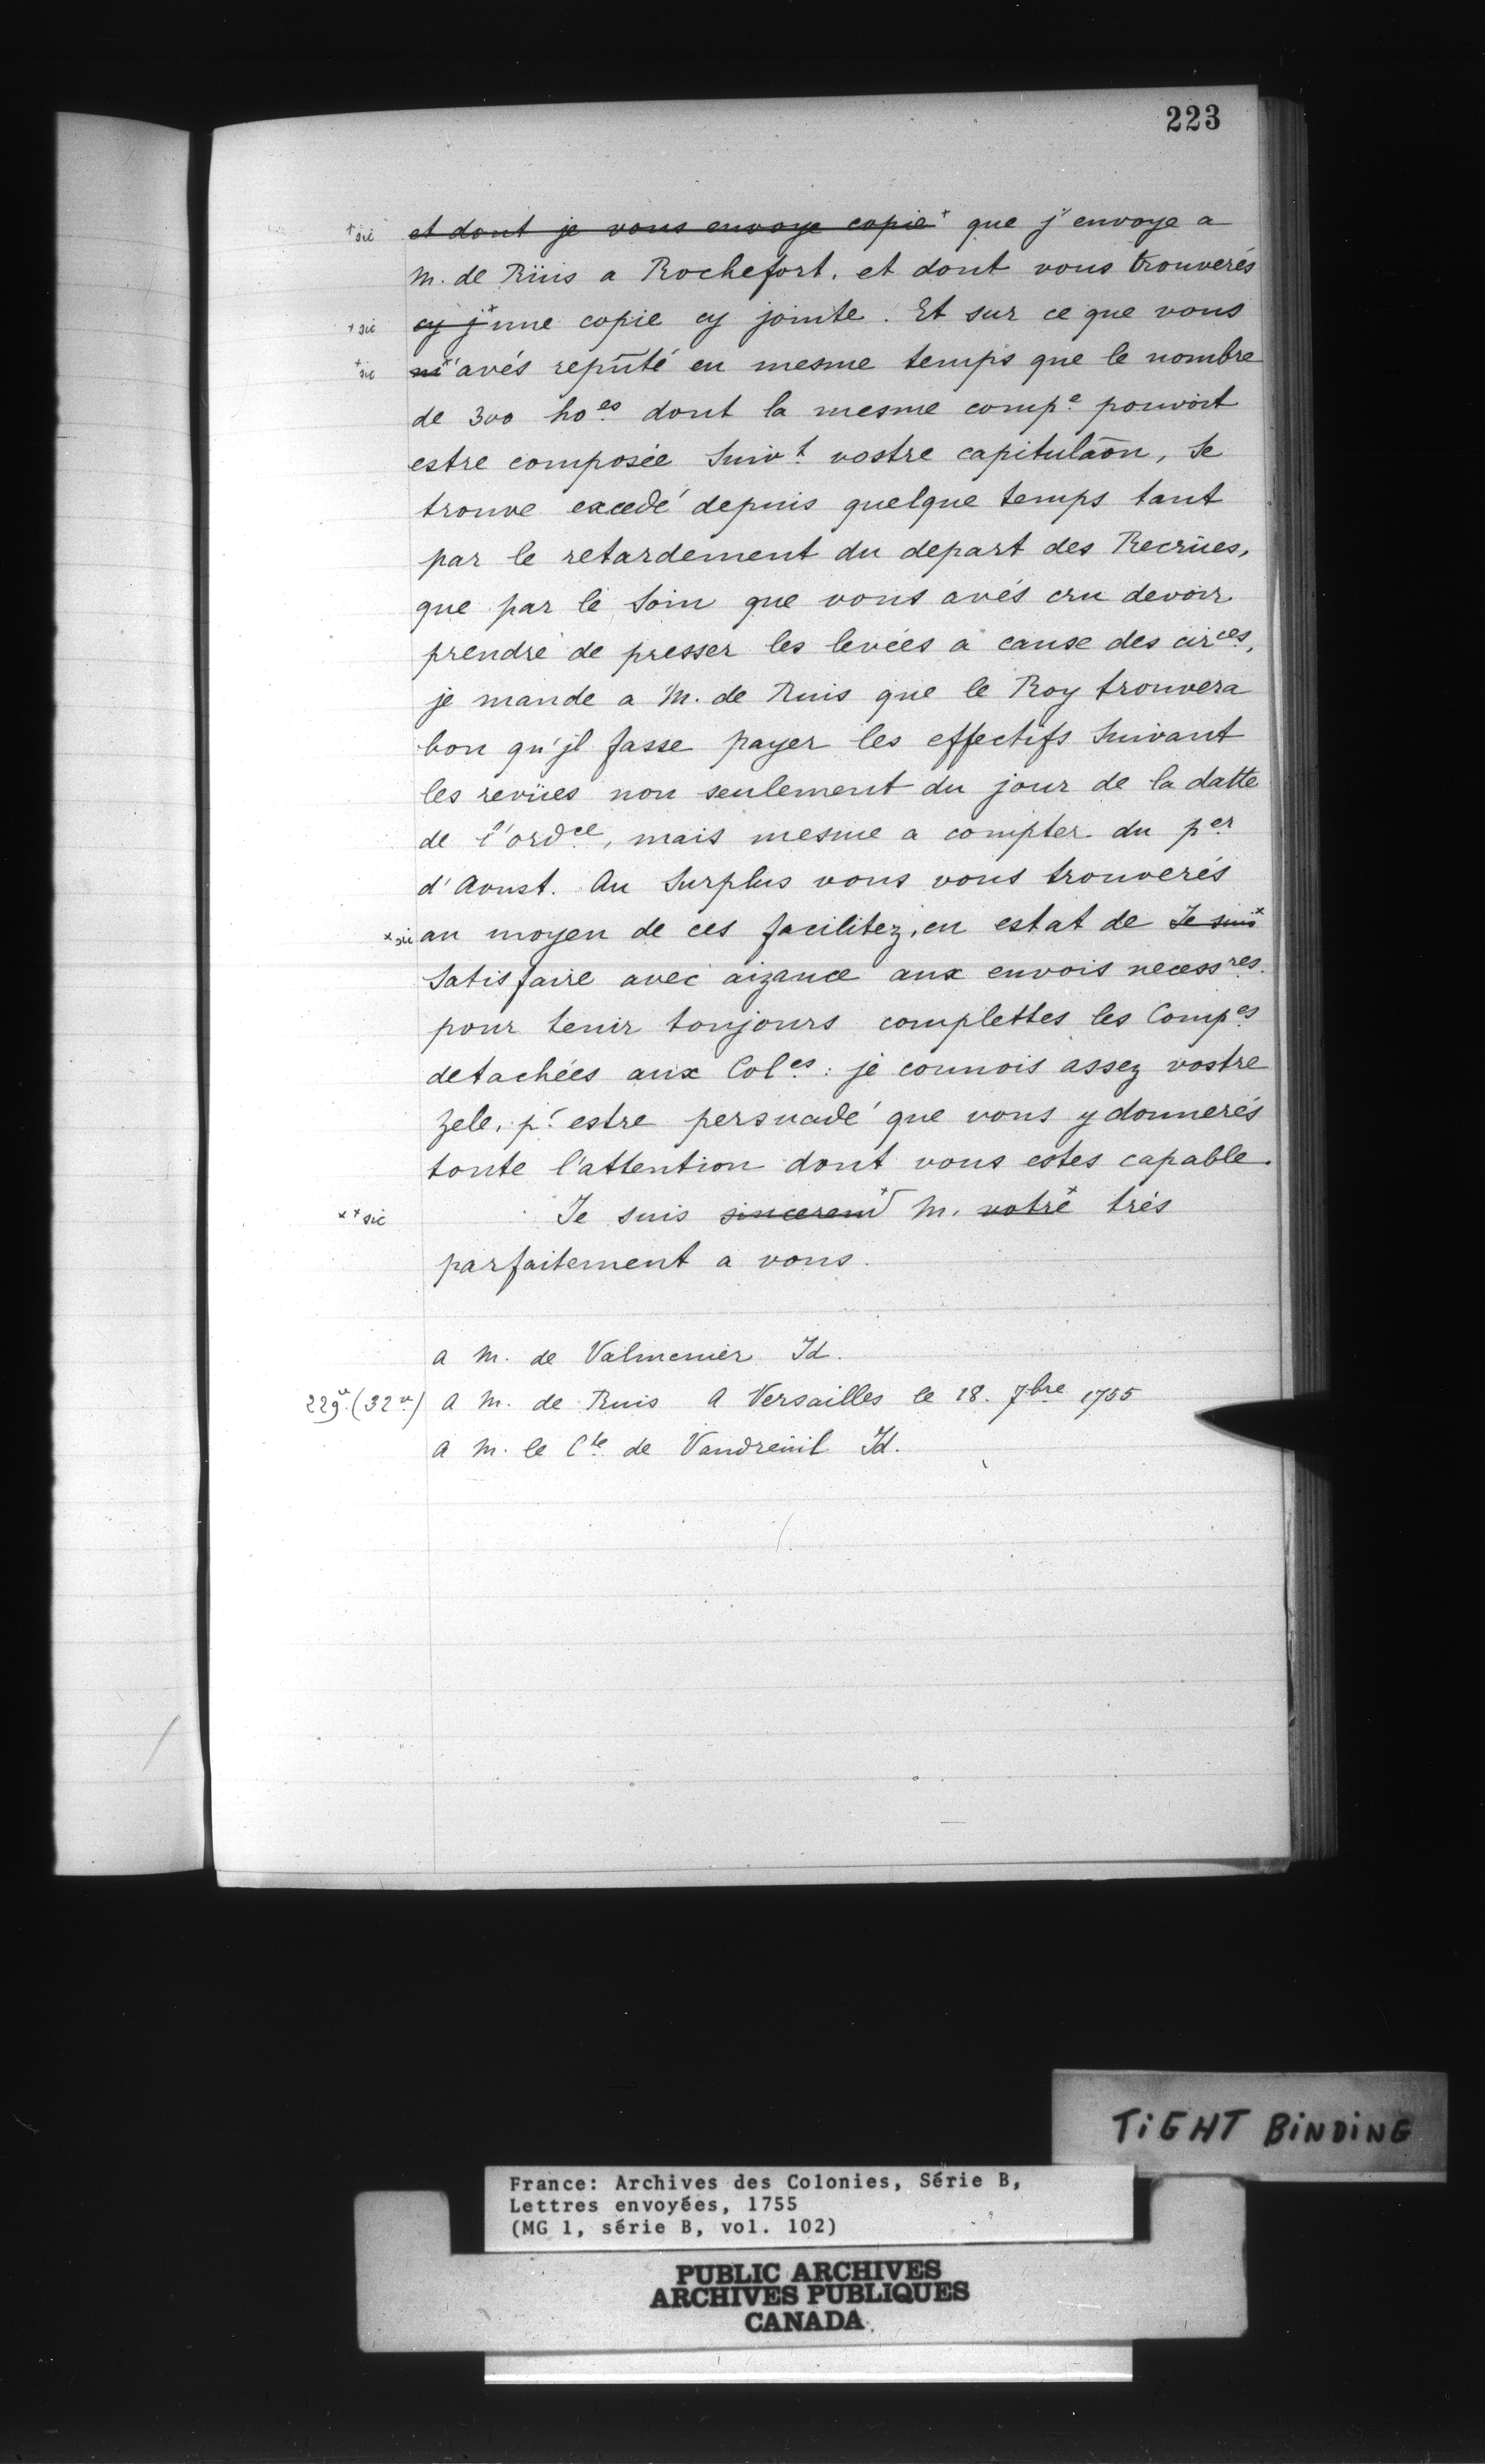 223
+sic et dont je vous envoye copie+ que j'envoye a
M. de Rüis a Rochefort, et dont vous trouverés
+sic cy j+ une copie cy jointe. Et sur ce que vous
+sic m'+ avés repñté en mesme temps que le nombre
de 300 hoes dont la mesme compe pouvoit
estre composée Suivt vostre capitulaõn, Se
trouve excedé depuis quelque temps tant
par le retardement du depart des Recrües,
que par le Soin que vous avés cru devoir
prendre de presser les levées a cause des circes,
je mande a M. de Ruis que le Roy trouvera
bon qu'jl fasse payer les effectifs Suivant
les revües non seulement du jour de la datte
de l'ordce, mais mesme a compter du per
d'Aoust. Au Surplus vous vous trouverés
×sic au moyen de ces facilitez, en estat de Je suis×
Satisfaire avec aizance aux envois necessres
pour tenir toujours complettes les Compes
detachées aux Coles : je connois assez vostre
Zele, pr estre persuadé que vous y donnerés
toute l'attention dont vous estes capable.
×+sic Je suis sincerem+t M. votre+ trés
parfaitement a vous.
a M. de Valmenier Id.
229v (32v) A M. de Ruis A Versailles le 18. 7bre 1755
a M. le Cte de Vaudreüil Id.
TiGHT BiNDiNG
France: Archives des Colonies, Série B,
Lettres envoyées, 1755
(MG 1, série B, vol. 102)
PUBLIC ARCHIVES
ARCHIVES PUBLIQUES
CANADA